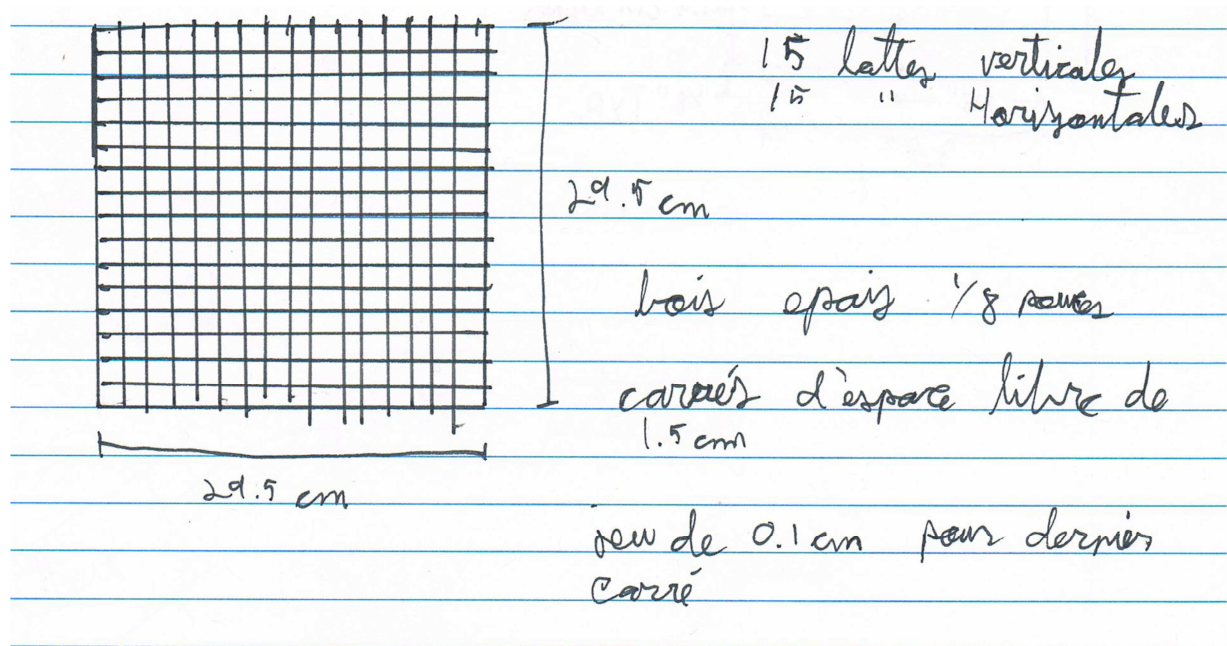 15 lattes verticales
15 " Horizontales
29.5 cm
bois epais 1/8 pouces
carrés d'espace libre de
1.5 cm
29.5 cm
jeu de 0.1 cm pour dernier
carré